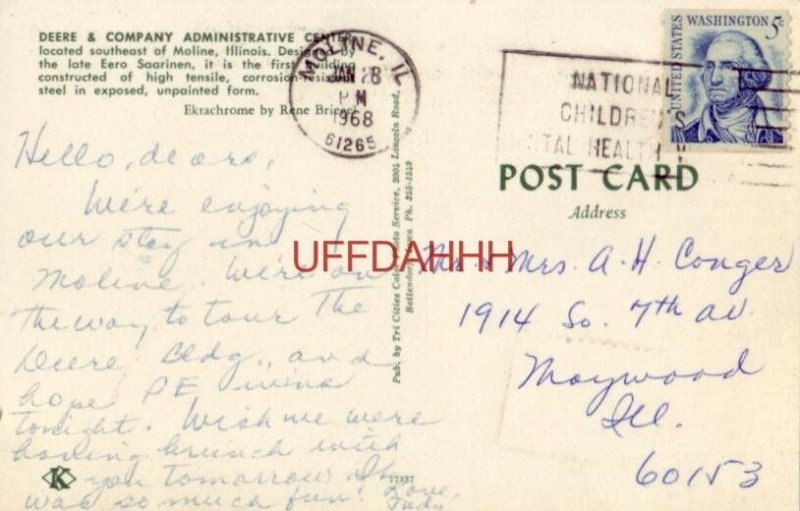 DEERE & COMPANY ADMINISTRATIVE CENTER
located southeast of Moline, Illinois. Designed by
the late Eero Saarinen, it is the first building
constructed of high tensile, corrosion-resistant
steel in exposed, unpainted form.
Ektachrome by Rene Brissel
MOLINE, IL
JAN 28
PM
1968
61265
NATIONAL
CHILDREN'S
DENTAL HEALTH
UNITED STATES
WASHINGTON 5c
POST CARD
Address
Hello, dears,
We're enjoying
our stay in
Moline. We're on
the way to tour the
Deere Bldg., and
hope PE wins
tonight. Wish we were
having brunch with
you tomorrow. It
was so much fun! Love,
Judy
Pub. by Tri Cities Color Photo Service, 2001 Lincoln Road,
Bettendorf, Iowa Ph. 355-1549
UFFDAHHH
Mr. & Mrs. A. H. Conger
1914 So. 7th av.
Maywood
Ill.
60153
K